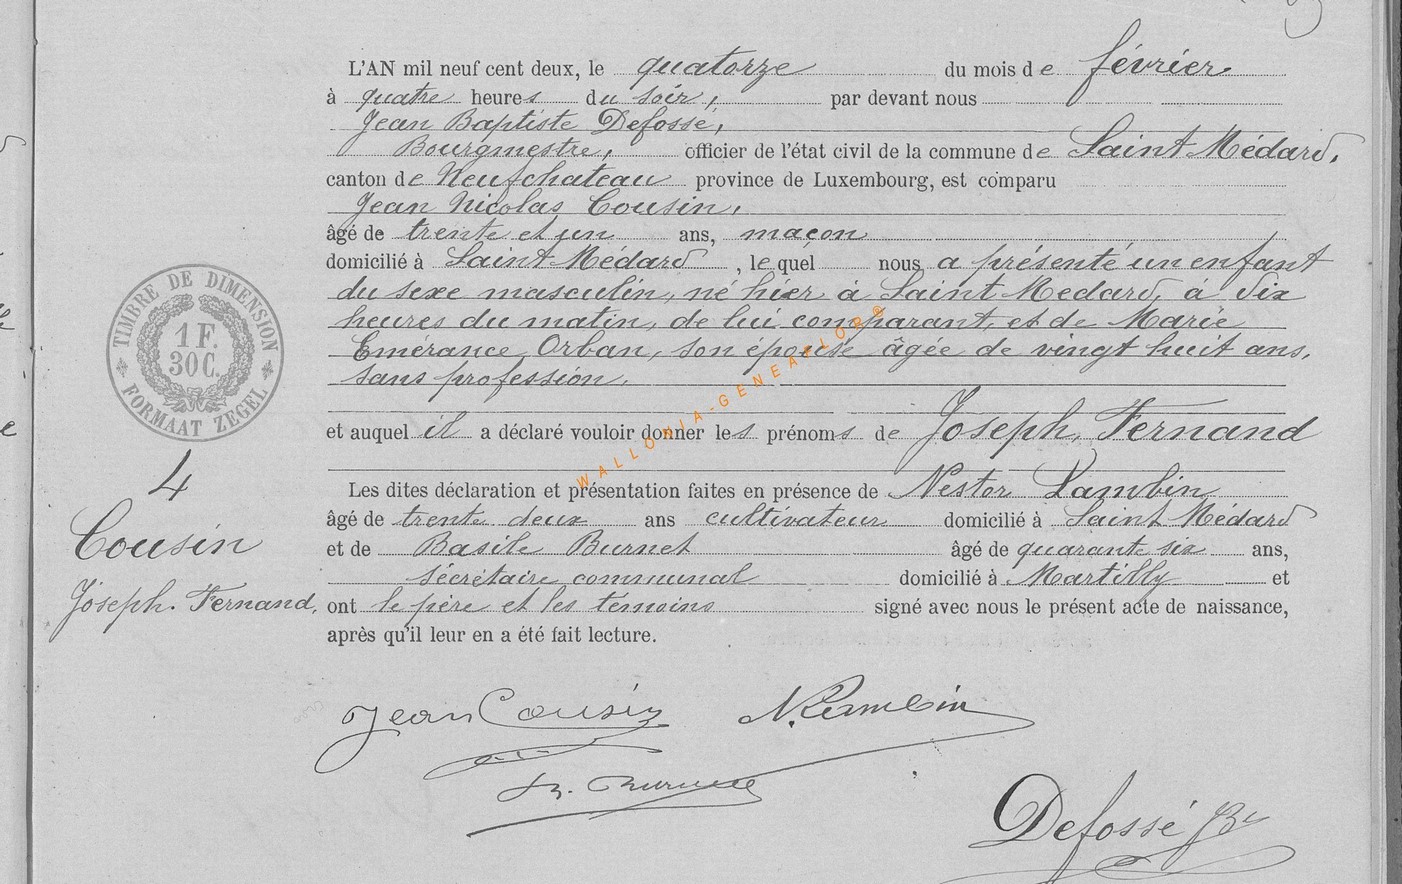 L'AN mil neuf cent deux, le quatorze du mois de février
à quatre heures du soir, par devant nous
Jean Baptiste Defossé,
Bourgmestre, officier de l'état civil de la commune de Saint Médard,
canton de Neufchateau province de Luxembourg, est comparu
Jean Nicolas Cousin,
âgé de trente et un ans, maçon
domicilié à Saint Médard, le quel nous a présenté un enfant
du sexe masculin, né hier à Saint Medard, à dix
heures du matin, de lui comparant, et de Marie
Emérance Orban, son épouse âgée de vingt huit ans,
sans profession.
et auquel il a déclaré vouloir donner les prénoms de Joseph, Fernand
Les dites déclaration et présentation faites en présence de Nestor Lambin
âgé de trente deux ans cultivateur domicilié à Saint Médard
et de Basile Burnet âgé de quarante six ans,
sécrétaire communal domicilié à Martilly et
ont le père et les témoins signé avec nous le présent acte de naissance,
après qu'il leur en a été fait lecture.
TIMBRE DE DIMENSION
1 F.
30 C.
FORMAAT ZEGEL
4
Cousin
Joseph. Fernand.
WALLONIA-GENEAFLOR®
Jean Cousin N. Lambin
B. Burnet
Defossé